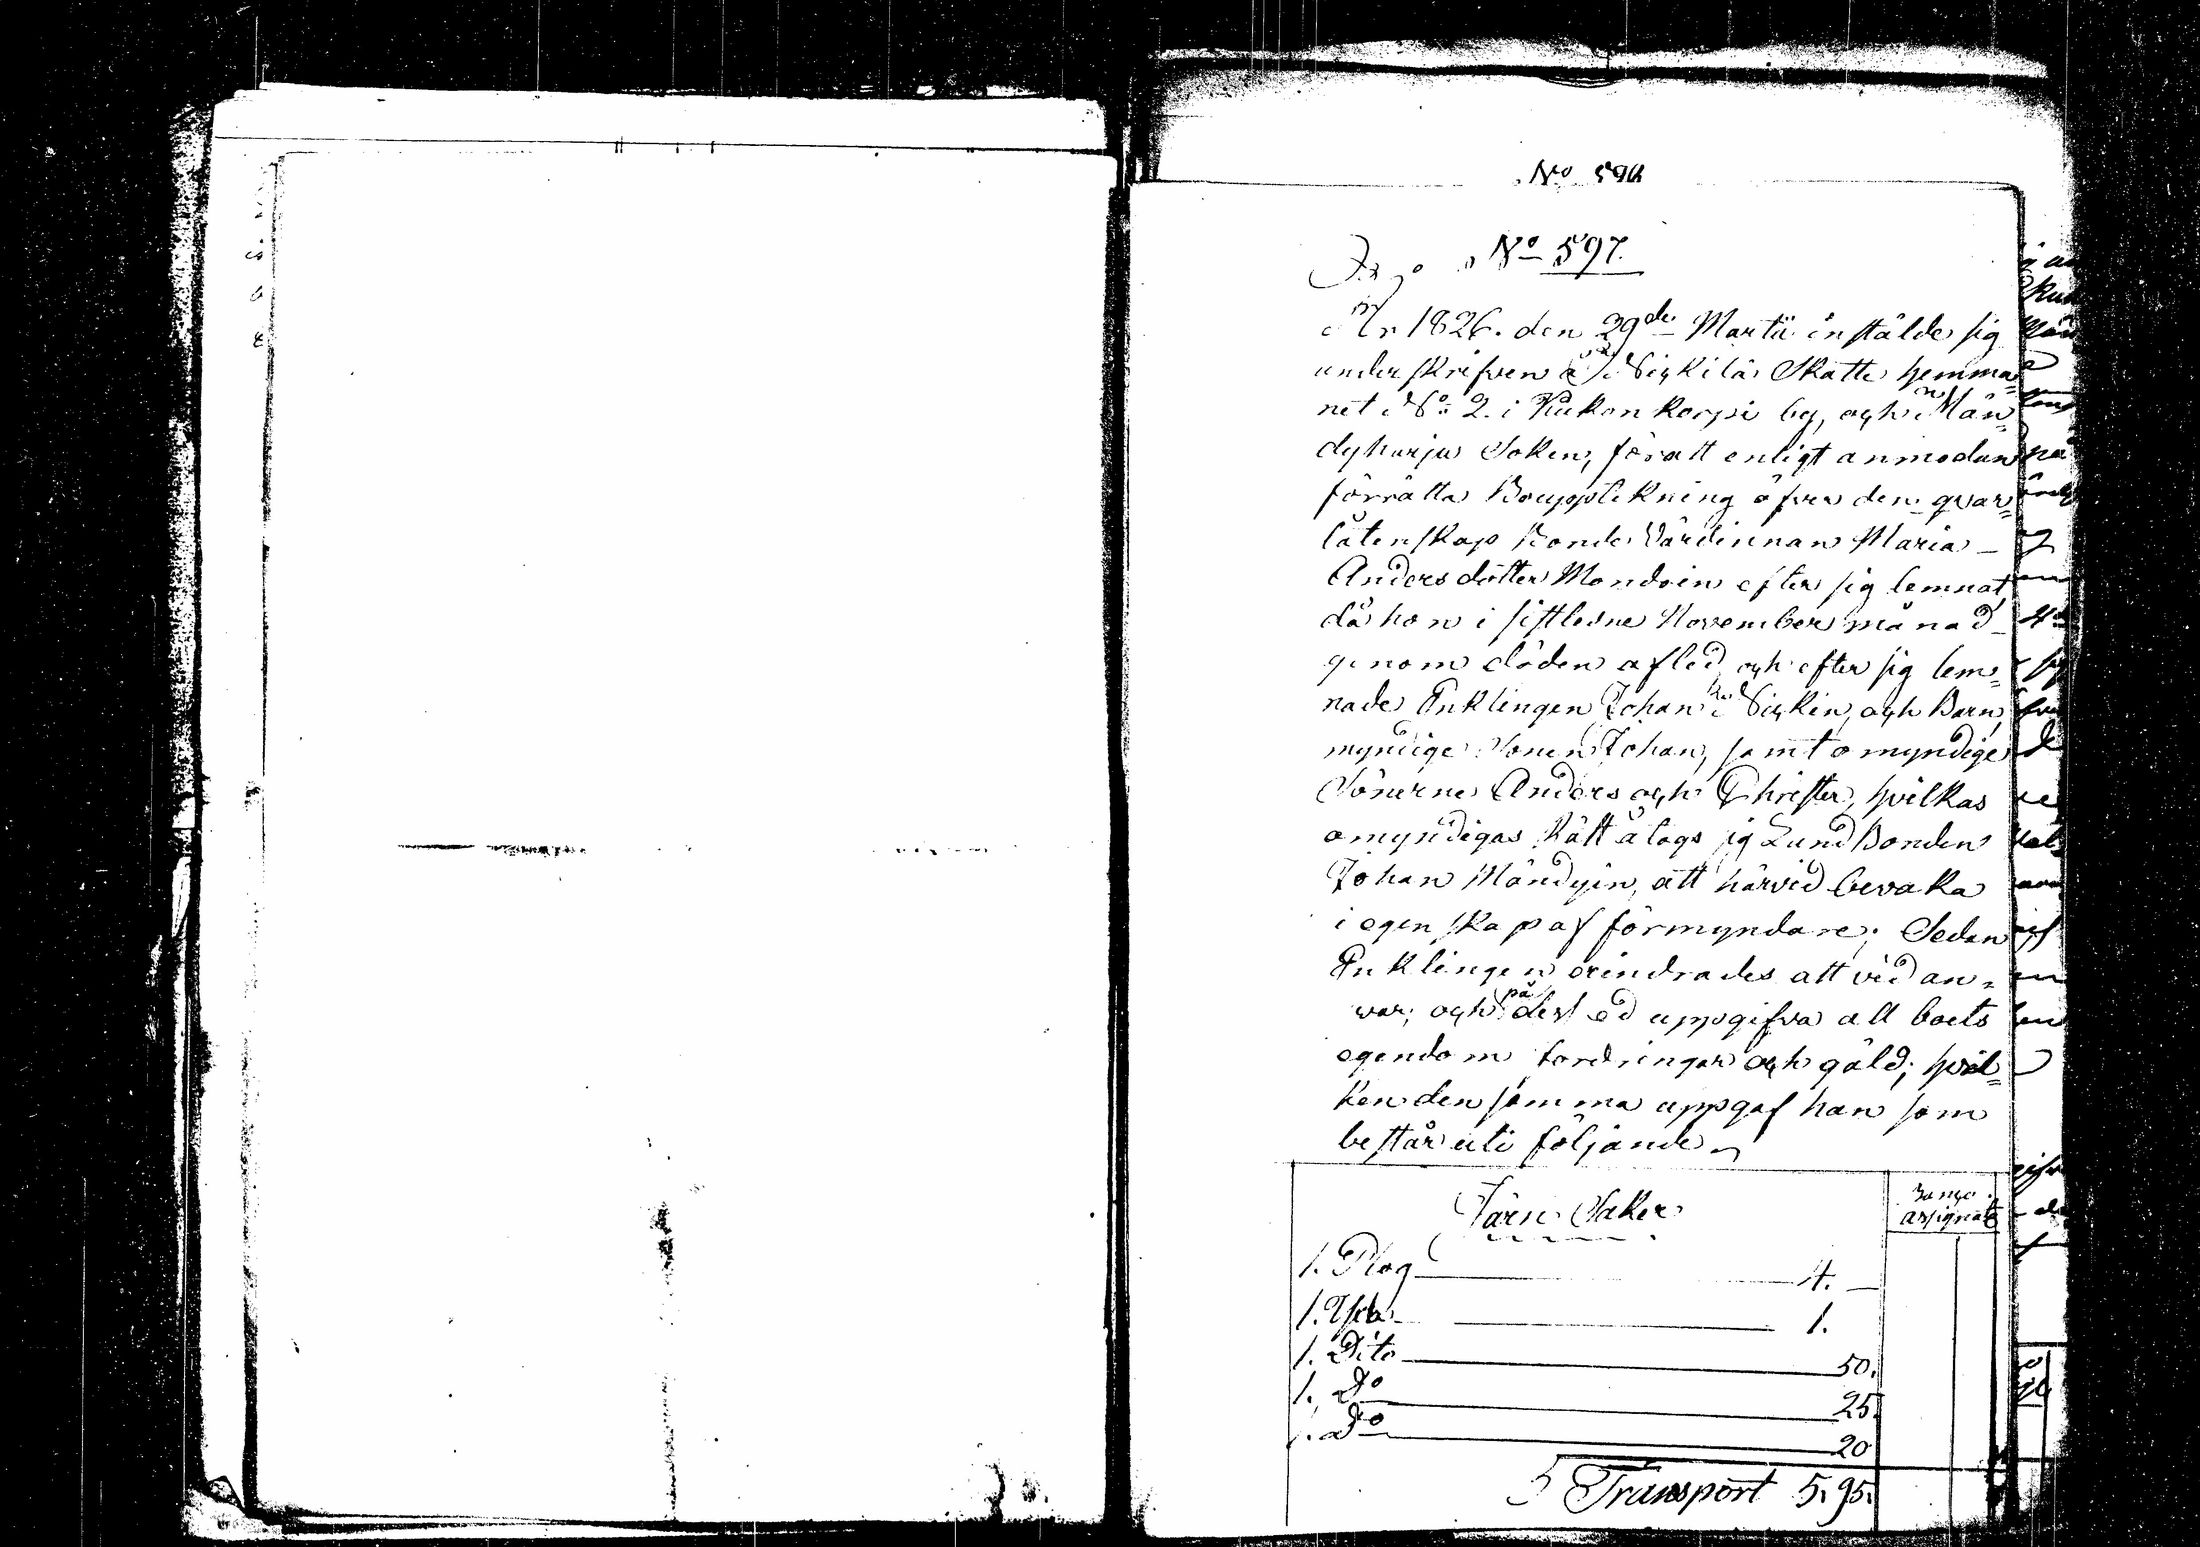 No 597.
År 1826. den 29de Martii instälde sig
underskrifven å Sickilä Skatte hemma=
net No 2. i Kukonkorpi by, och Män=
dyharju Soken, föratt enligt anmodan
förrätta Bouppteknining öfver den qvar=
låtenskap Bonde Värdinnan Maria
Andersdotter Mondoin efter sig lemnat,
då hon i sistledne November månad
genom döden afled, och efter sig lem=
nade Enklingen Johan Sickin, och Barn,
myndige Sonen Johan, samt omyndige
Sönerne Anders och Christer, hvilkas
omyndigas Rätt åtogs sig Lund Bonden
Johan Mändyin, att härvid bevaka
i egenskap af förmyndare; Sedan
Enklingen erindrades att vid an=
svar, och på ed uppgifva all boets
egendom fordringar och gäld; hvil=
ken densamma uppgaf han som
består uti följande
Järn Saker
Banco
assignat
1. Plog 4. —
1. Yxa 1.
1. Dito 50.
1. Do 25.
1. Do 20
Transport 5. 95.